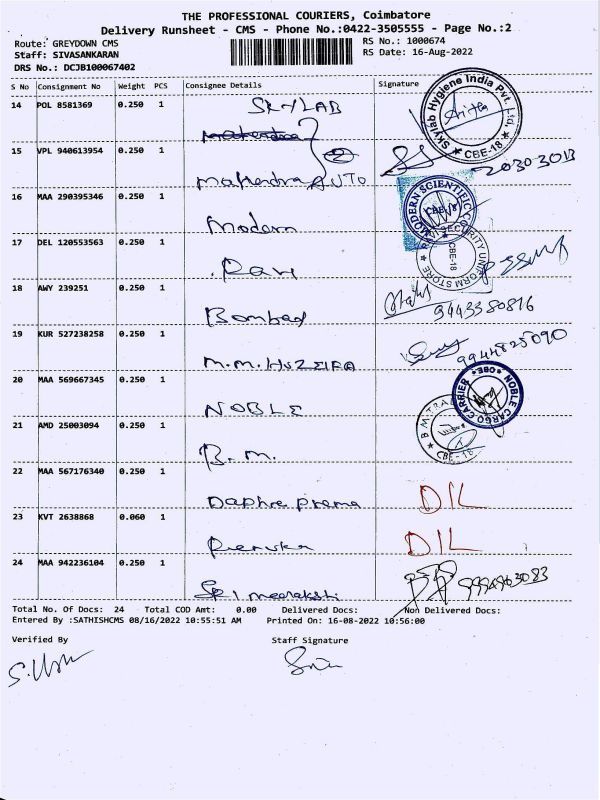 THE PROFESSIONAL COURIERS, Coimbatore
Delivery Runsheet - CMS - Phone No.:0422-3505555 - Page No.:2
Route: GREYDOWN CMS
RS No.: 1000674
Staff: SIVASANKARAN
RS Date: 16-Aug-2022
DRS No.: DCJB100067402
S No Consignment No Weight PCS Consignee Details Signature
14 POL 8581369 0.250 1 SKYLAB
Skylab Hygiene India Pvt. Ltd. CBE-18
Mahendra
15 VPL 940613954 0.250 1
2
Mahendra AUTO
20303013
16 MAA 290395346 0.250 1
MODERN SCIENTIFIC CBE-18
Modern
17 DEL 120553563 0.250 1
SECURITY UNIFORM STORE CBE-18
Ravi
18 AWY 239251 0.250 1
Bombad
9443380816
19 KUR 527238258 0.250 1
M.M. HUZEIFA
9944825090
20 MAA 569667345 0.250 1
NOBLE
NOBLE CARGO CARRIER CBE
21 AMD 25003094 0.250 1
B.M.
B.M. CBE-18
22 MAA 567176340 0.250 1
Daphne prema
DIL
23 KVT 2638868 0.060 1
DIL
24 MAA 942236104 0.250 1
SRI meenakshi
Total No. Of Docs: 24 Total COD Amt: 0.00 Delivered Docs: Non Delivered Docs:
Entered By :SATHISHCMS 08/16/2022 10:55:51 AM Printed On: 16-08-2022 10:56:00
Verified By Staff Signature